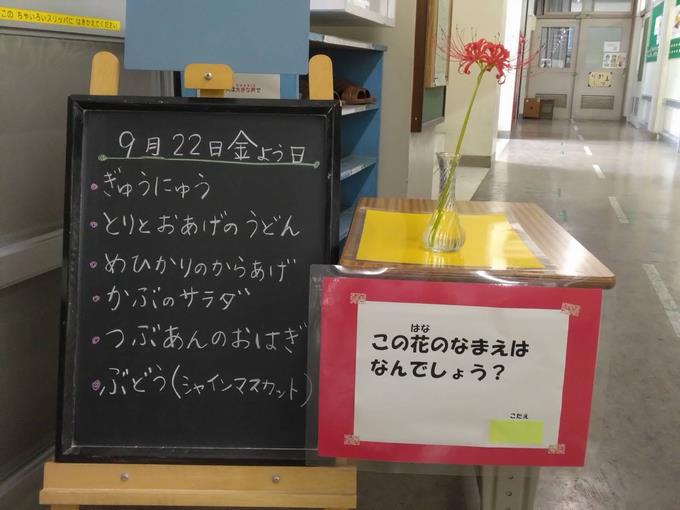 この ちゃいろいスリッパに はきかえてください
は大きな声で
9月22日金よう日
・ぎゅうにゅう
・とりとおあげのうどん
・めひかりのからあげ
・かぶのサラダ
・つぶあんのおはぎ
・ぶどう(シャインマスカット)
はな
この花のなまえは
なんでしょう？
こたえ